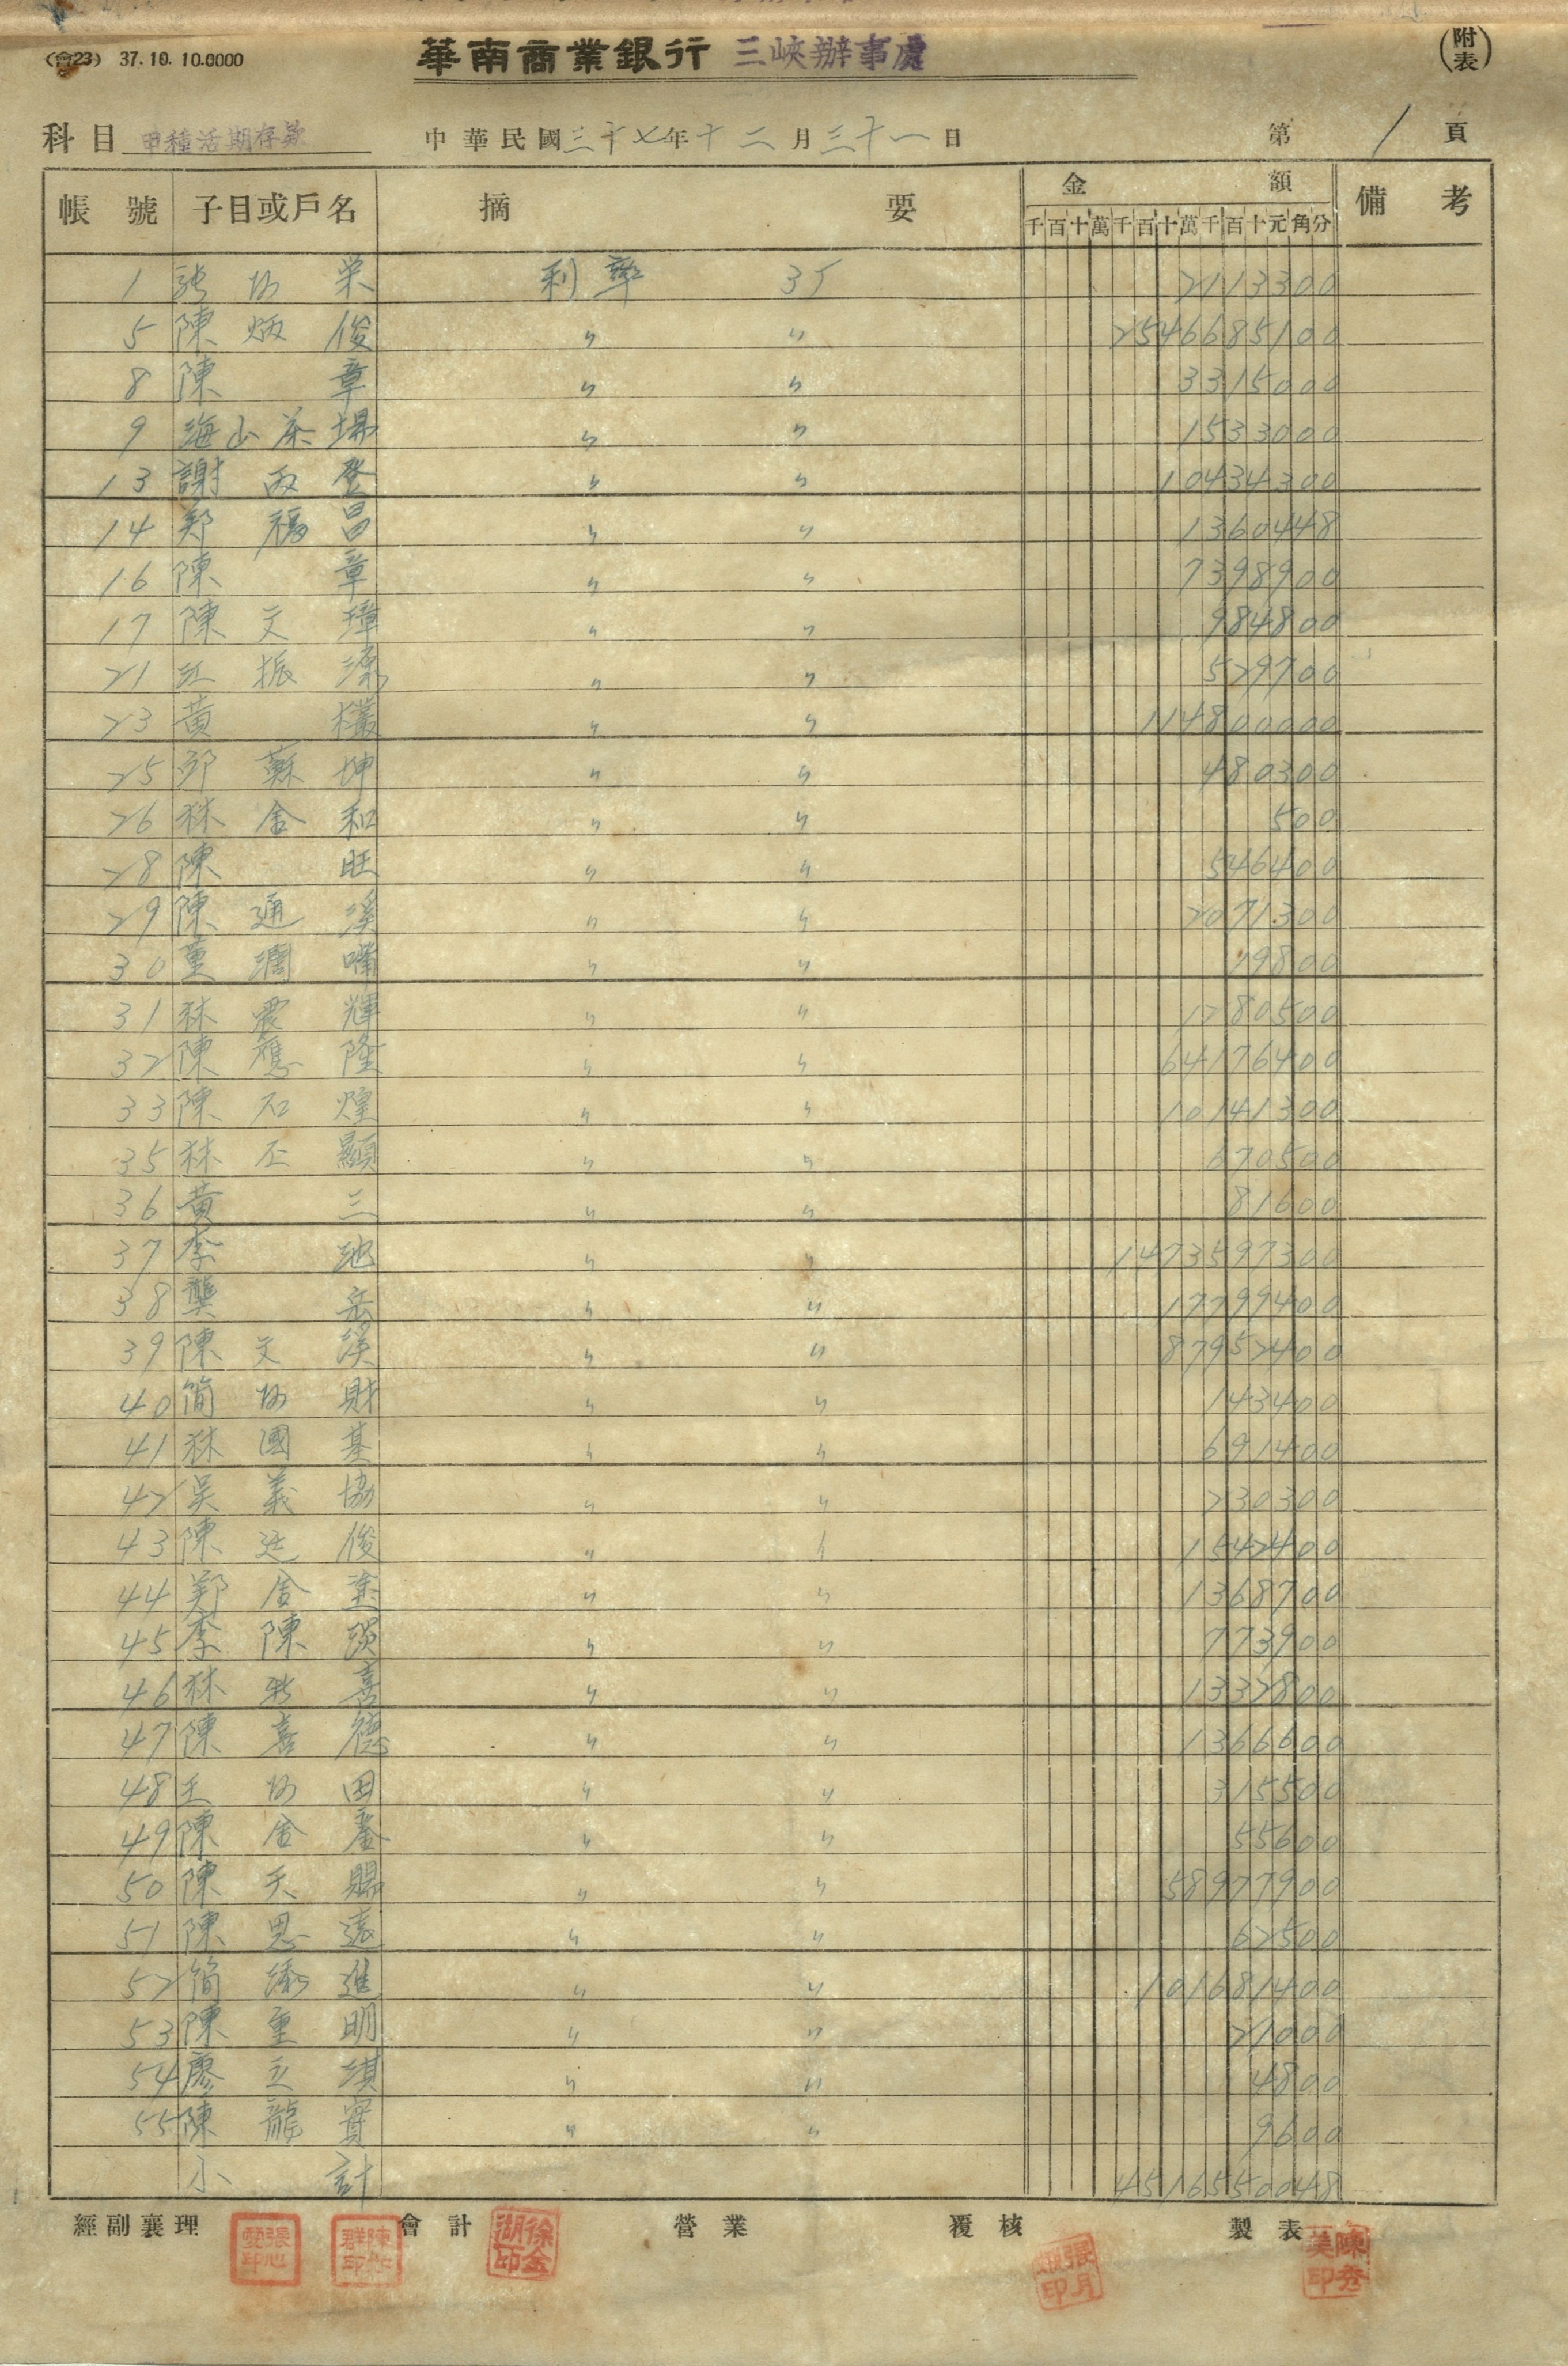 (會23) 37.10.10.0000
華南商業銀行 三峽辦事處
(附表)
科目 甲種活期存款 中華民國三十七年十二月三十一日 第 1 頁
帳號 子目或戶名 摘要 金額 備考
千百十萬千百十萬千百十元角分
1 張 栄 利率 35 2113300
5 陳炳俊 〃 〃 2546685100
8 陳章 〃 〃 3315000
9 海山茶場 〃 〃 1533000
13 謝丙登 〃 〃 10434300
14 郑福昌 〃 〃 1360448
16 陳章 〃 〃 7398900
17 陳文璋 〃 〃 984800
21 江振源 〃 〃 529700
23 黃欉 〃 〃 114800000
25 邱蘇坤 〃 〃 480300
26 林金和 〃 〃 500
28 陳旺 〃 〃 546400
29 陳通溪 〃 〃 2071300
30 董 〃 〃 19800
31 林震輝 〃 〃 1280500
32 陳應隆 〃 〃 64176400
33 陳石煌 〃 〃 10141300
35 林丕顯 〃 〃 670500
36 黃三 〃 〃 81600
37 李池 〃 〃 1473597300
38 龔岳 〃 〃 17799400
39 陳文溪 〃 〃 87952400
40 簡 財 〃 〃 143400
41 林國基 〃 〃 691400
42 吳義協 〃 〃 230300
43 陳廷俊 〃 〃 1542400
44 郑金塗 〃 〃 1368700
45 李陳 〃 〃 773900
46 林 喜 〃 〃 1332800
47 陳喜德 〃 〃 1366600
48 王 田 〃 〃 315500
49 陳金 〃 〃 55600
50 陳天賜 〃 〃 58977900
51 陳思遠 〃 〃 62500
52 簡添進 〃 〃 101681400
53 陳重明 〃 〃 21000
54 廖立琪 〃 〃 4800
55 陳龍寳 〃 〃 9600
小計 4516550048
經副襄理 會計 營業 覆核 製表
徐金湖印
陳秀美印